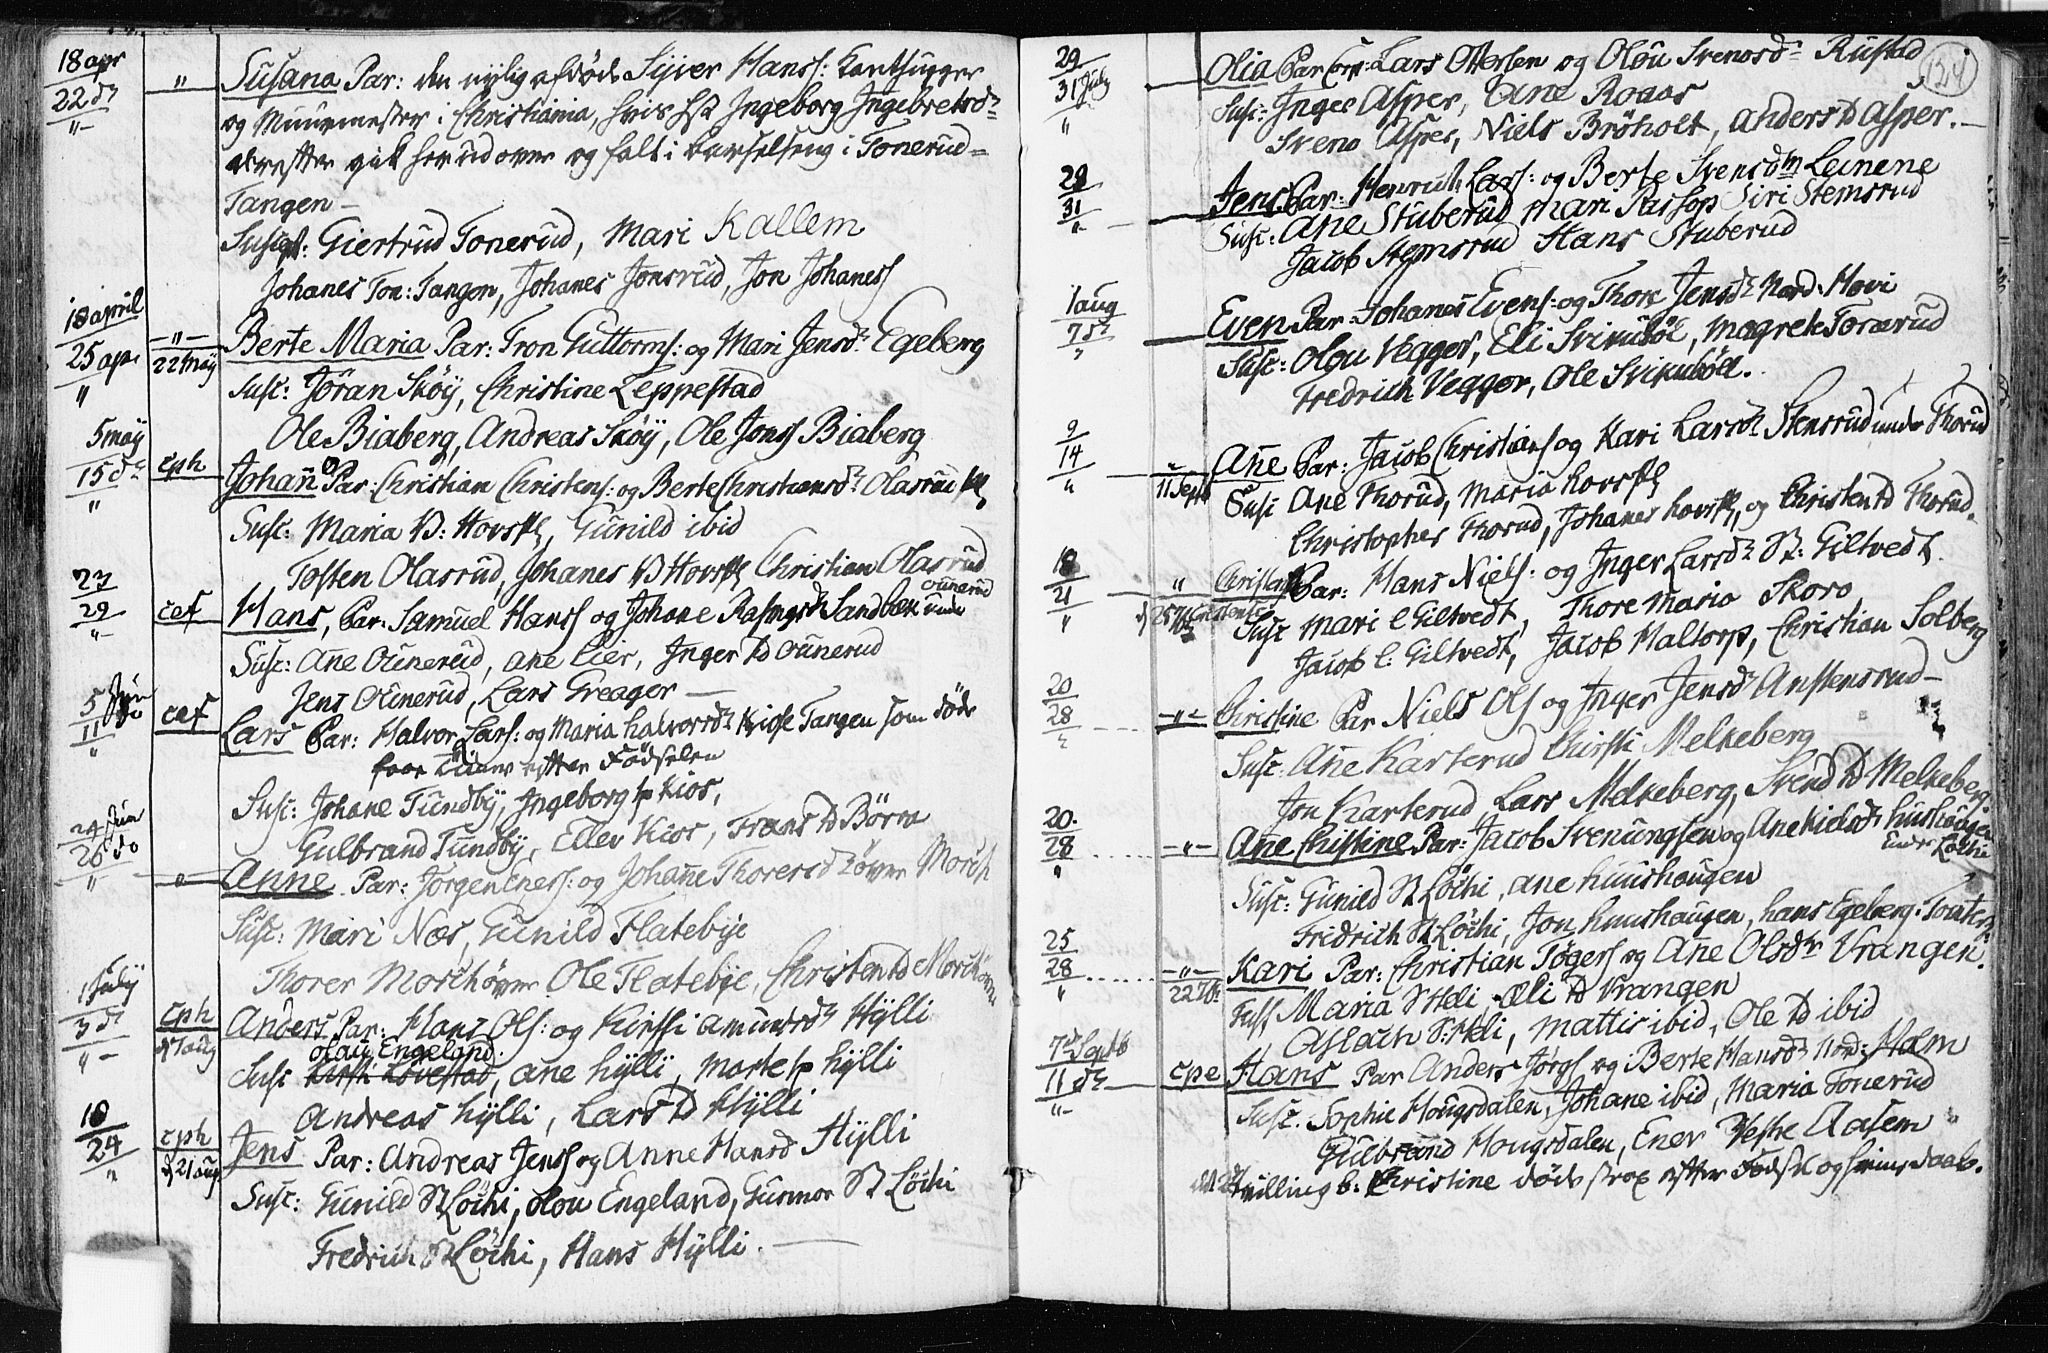 18 apr
22 dº
"-
"
Susana Par: den nylig afdöde Syver Hanss:
og Muurmester i Christiania, hvis Ingeborg Ingebretsdr
derefter gik her ud over og falt i Barselseng i Tonerud-
Tangen-
Susc: Giertrud Tonerud, Mari Kallem
Johanes Ton: Tangen, Johanes Jonsrud, Jon Johaness
18 april
25 apr
"
-"-
22 may
Berte Maria Par: Tron Guttorms: og Mari Jensdr Egeberg
Susc: Jöran Sköy, Christine Leppestad
Ole Biaberg, Andreas Sköy, Ole Jonss Biaberg
5 may
15 dº
"
cph
Johan Par: Christian Christens: og Berte Christiansdr Olasrud
Susc: Maria V: Hovs, Gunild ibid
Tosten Olasrud, Johanes V Hovs Christian Olasrud
23
29
"-
cef
Hans, Par: Samuel Hanss og Johane Rasmusdr Sandbæk under
ounerud
Susc: Ane Ounerud, ane Lier, Inger D ounerud
Jens Ounerud, Lars Greager
5 Jun
11 do
"
cef
Lars Par: Halvor Lars: og Maria halvorsdr Kiose Tangen som döde
faae Timer efter Födselen
Susc: Johane Tundby, Ingeborg Kios,
Gulbrand Tundby, Ellev Kios, Frans D Börm
24 Jun
26 do
"
"
Anne Par: Jörgen Eners: og Johane Thoresd över Morch
Susc: Mari Næs, Gunild Flatebye
Thorer Morchöver Ole Flatebye, Christen D Morchöver
1 July
3 dº
"-
cph
7 aug
Anders Par: Hans Ols: og Kirsti Amundsdr Hylli
olau Engeland.
Susc Kirsti Lövestad, ane hylli, Marte hylli
Andreas hylli, Lars D Hylli
18
24
"
cph
21 aug
Jens Par: Andreas Jenss og Anne Hansd Hylli
Susc: Gunild St Löchi, olou Engeland, Gunmor St Löchi
Fredrich St Löchi, Hans Hylli.
124
29
31 July
"
Olia Par: Lars Ottersen og Olou Svensdr Rustad
Susc: Inger Asper, Ane Roaas
Svend Asper, Niels Bröholt, anders D Asper.
29
31
"
Jens Par: Henrich Lars: og Berte Svensdr Leinene
Susc: Ane Stuberud Mari Siri Stemsrud
Jacob Stemsrud Hans Stuberud
1 aug
7 dº
"
Even Par: Johanes Evens: og Thore Jensdr Nord: Hovi
Susc: Olou Vegger, Eli Svikuböl, Magrete Tonerud
Fredrich Vegger, Ole Svikuböll.
9
14
"
"
11 Septb
Ane Par: Jacob Christians og Kari Larsdr Stensrud under Thorud
Susc Ane Thorud, Maria hovs
Christopher Thorud, Johanes hovs, og Christen D Thorud.
18
21
"
"
Christen Par: Hans Niels: og Inger Larsdr St: Giltvedt.
Susc Mari l Giltvedt, Thore Maria Skoro
Jacob l: Giltvedt, Jacob Haltorp, Christian Solberg
20
28
"
-"-
Christine Par Niels Ols og Inger Jensdr Anstensrud-
Susc: Ane Karterud Chirsti Melkeberg
Jon Karterud, Lars Melkeberg, Svend D Melkeberg.
20.
28
"
-"-
Ane Christine Par: Jacob Svenungsen og Ane Nielsdr hushougen
under Löchi
Susc: Gunild St Löchi, ane huushougen
Fridrich St Löchi, Jon huushaugen, hans Egeberg.
25
28
"
-"-
22 7br
Kari Par: Christian Tögers og Ane Olsdr Vrangen.
Susc Maria S Heli Eli D Vrangen
Aslach S: Heli, Mattis ibid, Ole D ibid
7 Septb
11 dº
"-
cpe
Hans Par Anders Jörgs og Berte Hansdr Nord: Holm
Susc. Sophie Hougsdalen, Johane ibid, Maria Tonerud
Gulbrand Hougsdalen, Ener Vestre Aasem
tvilling b: Christine döde strax efter Födsel og hiemedaab.